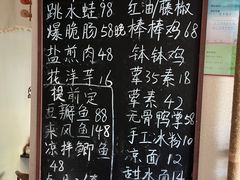 跳水蛙98
爆脆肠58晚
盐煎肉48
花洋芋16
提前定
豆瓣鱼88
乘风鱼148
凉拌鲫鱼
48
红油藤椒
棒棒鸡68
钵钵鸡
荤35素18
荤素42
无骨鸭掌58
手工冰粉10
凉面12
甜水面14